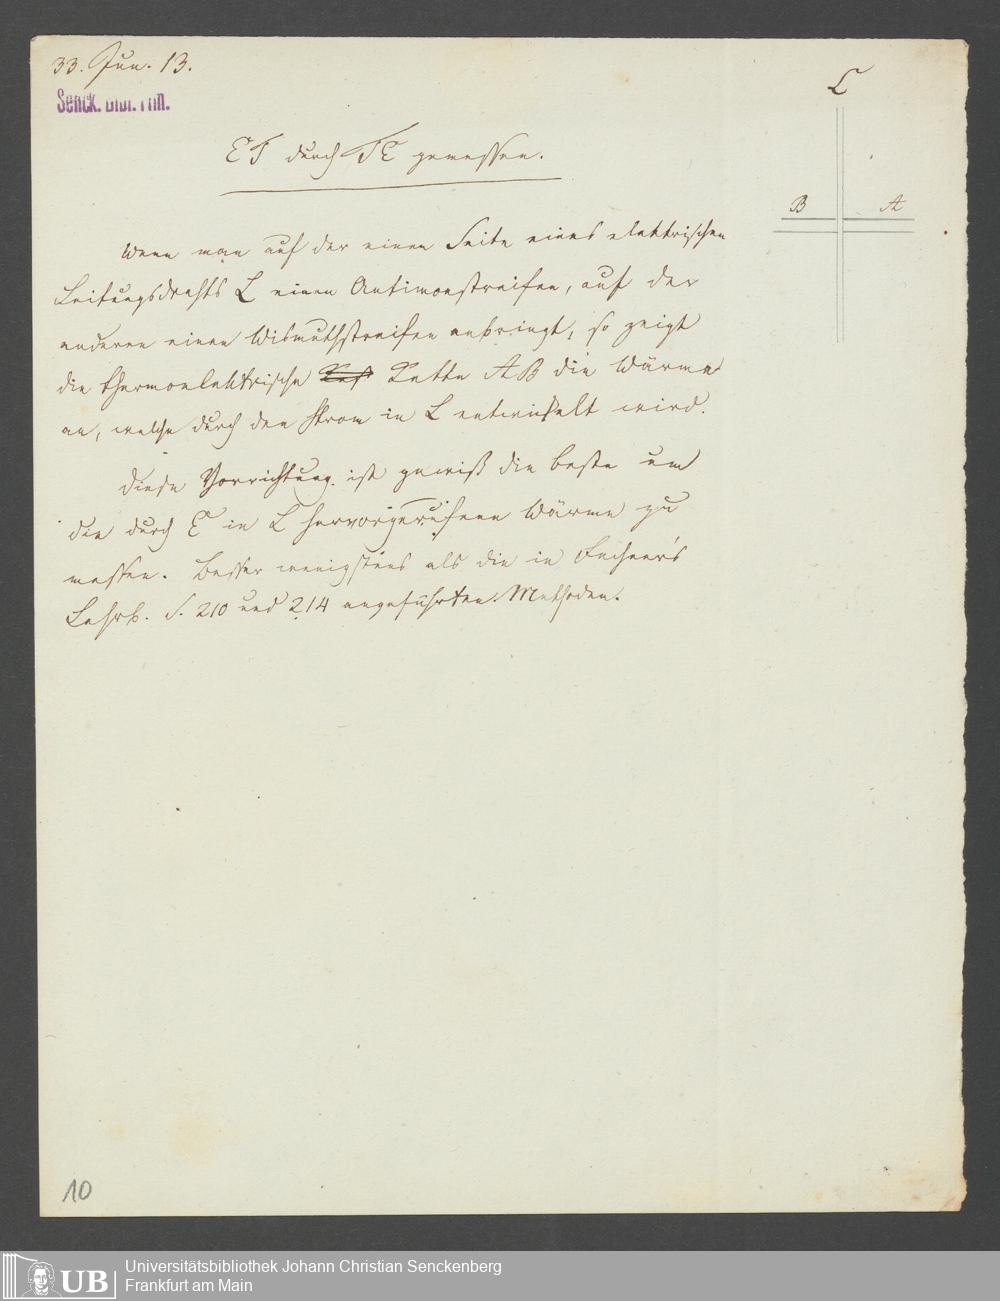 33. Jun. 13.
Senck. Bibl. Ffm.
L
ET durch TE gemessen.
B A
Wenn man auf der einen Seite eines elektrischen
Leitungsdrahts L einen Antimonstreifen, auf der
anderen einen Wismuthstreifen anbringt, so zeigt
die thermoelektrische Kette AB die Wärme
an, welche durch den Strom in L entwickelt wird.
Diese Vorrichtung ist gewiß die beste um
die durch E in L hervorgerufene Wärme zu
messen. Besser wenigstens als die in Fechner's
Lehrb. S. 210 und 214 angeführten Methoden.
10
UB
Universitätsbibliothek Johann Christian Senckenberg
Frankfurt am Main